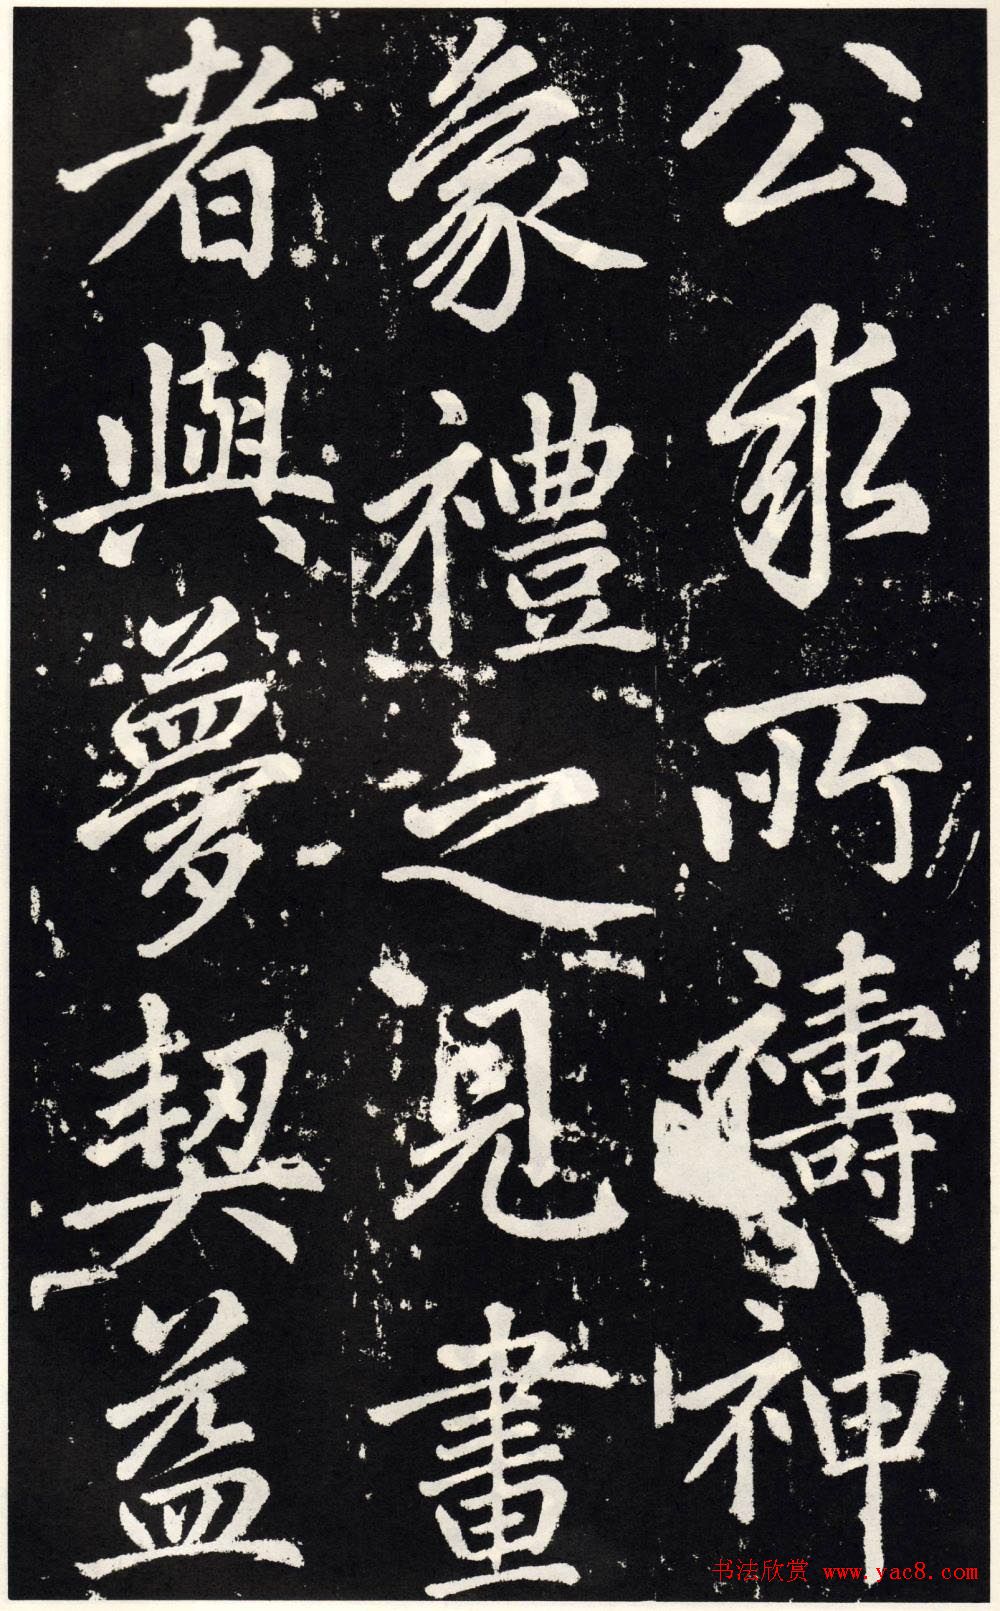 公求所禱神
象禮之見畫
者與夢契益
书法欣赏 www.yac8.com